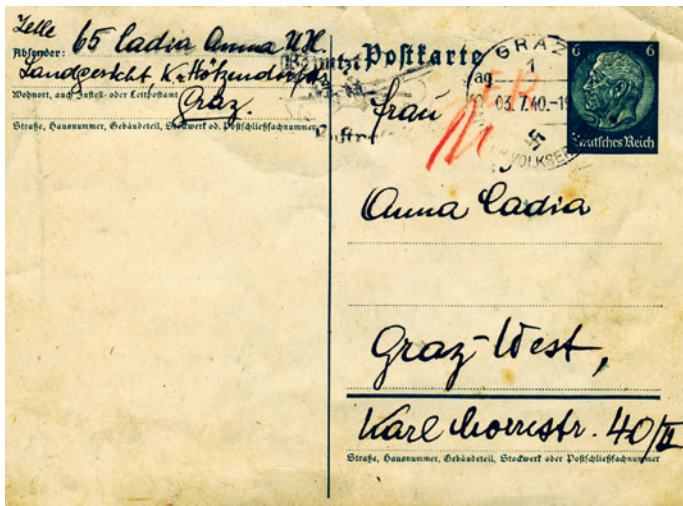 Zelle 65 Cadia Anna UH.
Absender:
Landgericht, K. Hötzendorfstr
Wohnort, auch Zustell- oder Leitpostamt
Graz.
Straße, Hausnummer, Gebäudeteil, Stockwerk od. Postschließfachnummer
Benutzt
Postkarte
GRAZ
1
03.7.40.-19
VOLKSER
6 6
Deutsches Reich
Frau
Anna Cadia
Graz-West,
Karl Morrestr. 40/II
Straße, Hausnummer, Gebäudeteil, Stockwerk oder Postschließfachnummer